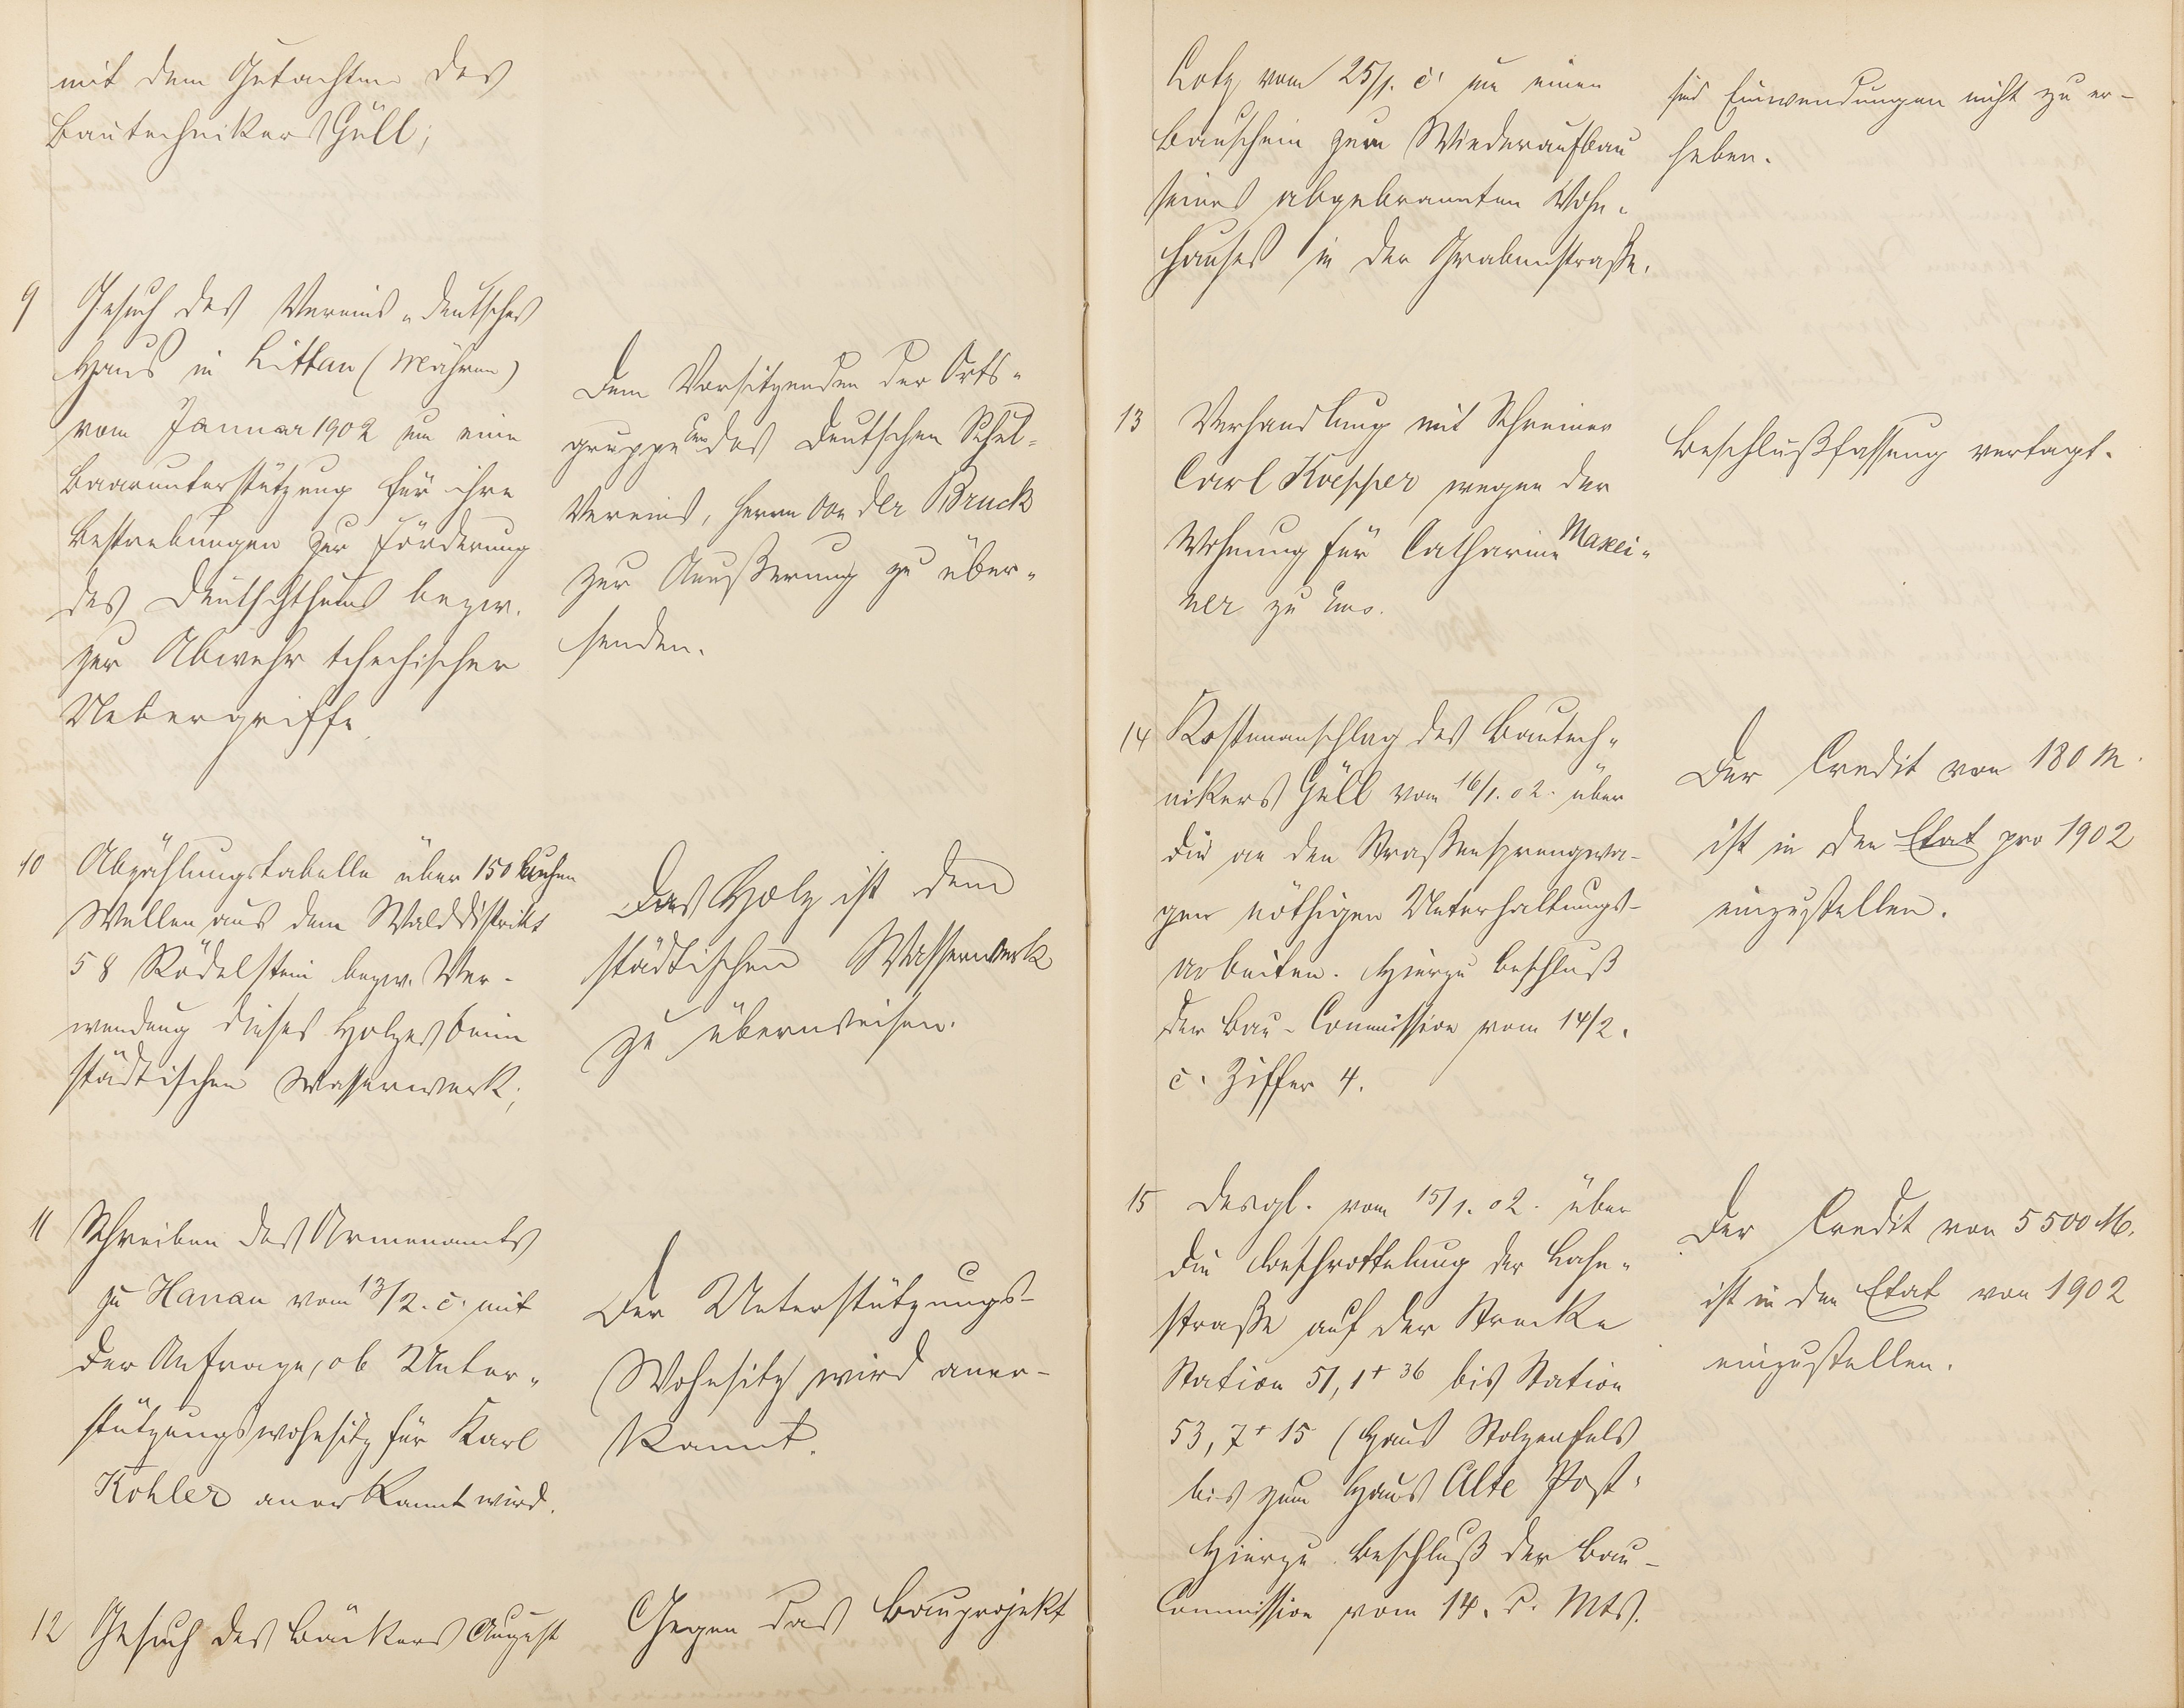 mit dem Gutachten des
Bautechnikers Güll;
9 Gesuch des Vereins „Deutsches
Haus in Littau (Mähren)
vom Januar 1902 um eine
Baarunterstützung für ihre
Bestrebungen zur Förderung
des Deutschthums bezw.
zur Abwehr tschechischer
Uebergriffe.
Dem Vorsitzenden der Orts-
gruppe Ems des Deutschen Schul-
Vereins, Herrn von der Bruck
zur Aeußerung zu über-
senden.
10 Abzählungstabelle über 150 buchen
Wellen aus dem Walddistrikt
58 Rödelstein bezw. Ver-
wendung dieses Holzes beim
städtischen Wasserwerk;
Das Holz ist dem
städtischen Wasserwerk
zu überweisen.
11 Schreiben des Armenamts
zu Hanau vom 13/2. c. mit
der Anfrage, ob Unter-
stützungswohnsitz für Karl
Kohler anerkannt wird.
Der Unterstützungs-
Wohnsitz wird aner-
kannt.
12 Gesuch des Bäckers August
Gegen das Bauprojekt
Lotz vom 25/1. c. um einen
Bauschein zum Wiederaufbau
seines abgebrannten Wohn-
hauses in der Grabenstraße.
sind Einwendungen nicht zu er-
heben.
13 Verhandlung mit Schreiner
Carl Koepper wegen der
Wohnung für Catharine Maxei-
ner zu Ems.
Beschlußfassung vertagt.
14 Kostenanschlag des Bautech-
nikers Güll vom 16/1. 02. über
die an den Straßensprengwa-
gen nöthigen Unterhaltungs-
arbeiten. Hierzu Beschluß
der Bau-Commission vom 14/2.
c. Ziffer 4.
Der Credit von 180 M.
ist in den Etat pro 1902
einzustellen.
15 Desgl. vom 15/1. 02. über
die Beschrottelung der Lahn-
straße auf der Strecke
Station 51,1+36 bis Station
53,7+15 (Haus Stolzenfels
bis zum Haus Alte Post.
Hierzu Beschluß der Bau-
Commission vom 14. d. Mts.
Der Credit von 5500 M.
ist in den Etat von 1902
einzustellen.